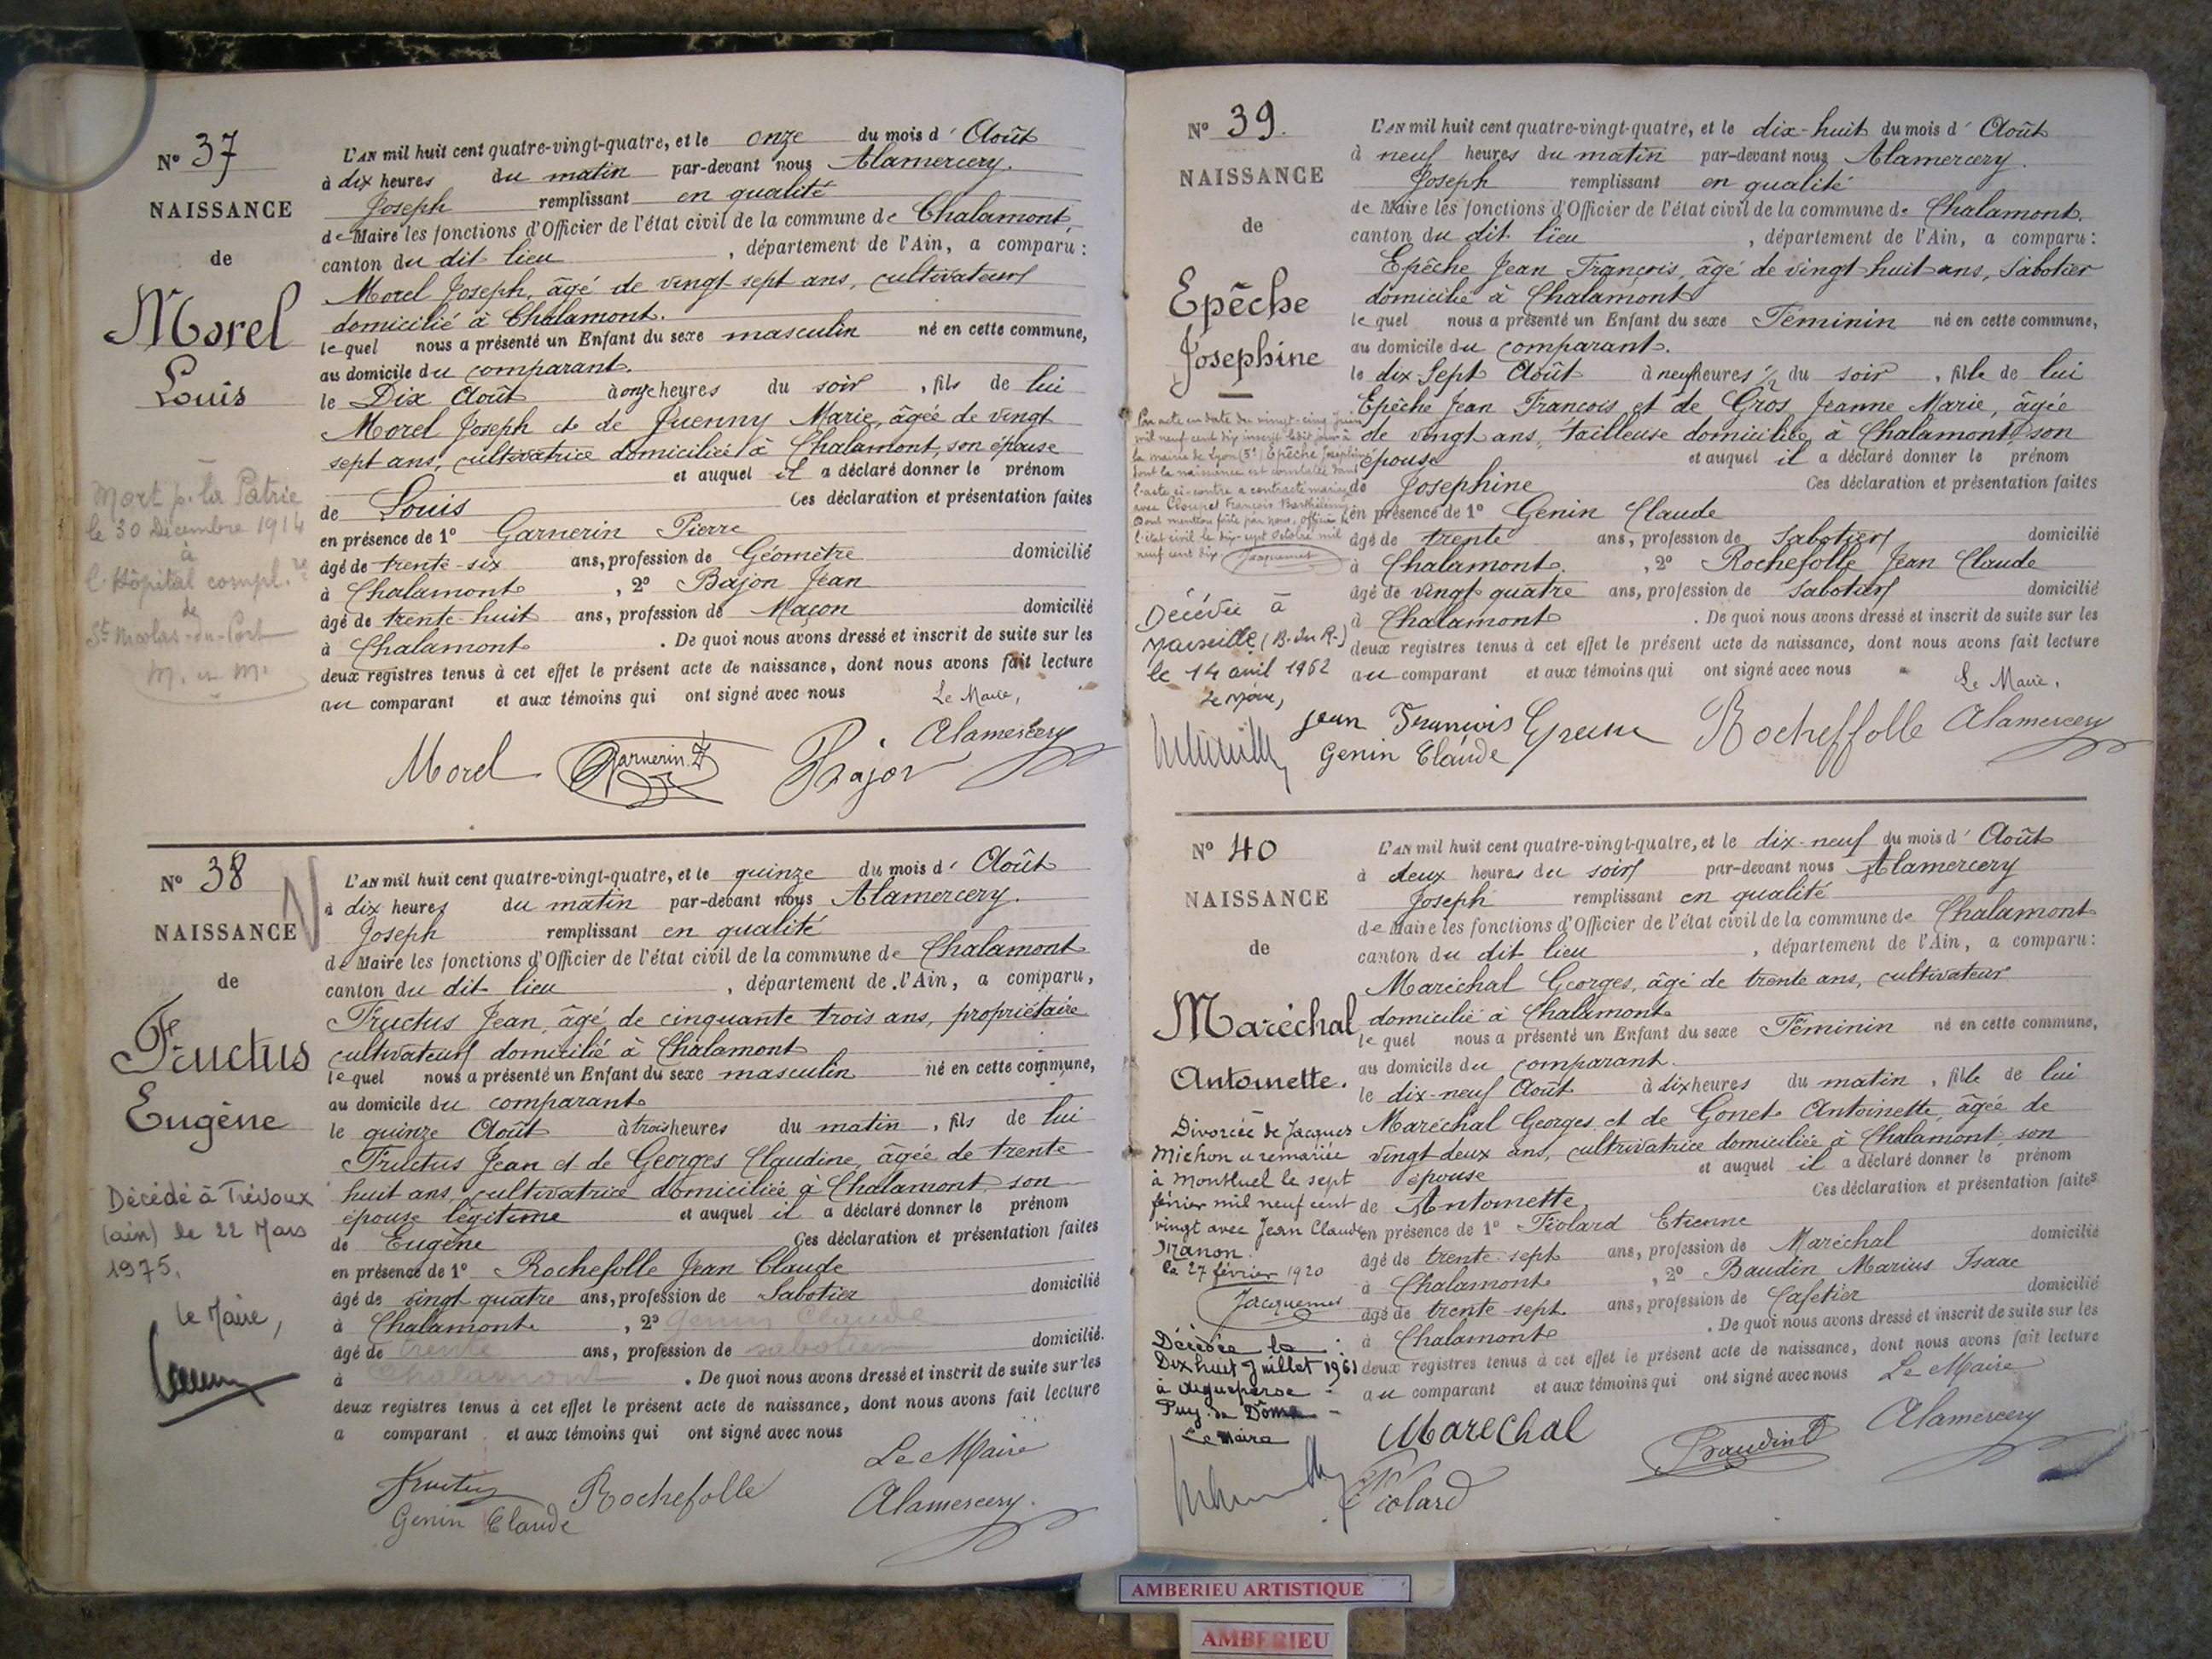 N° 37
NAISSANCE
de
Morel
Louis
Mort p. la Patrie
le 30 Décembre 1914
à
l'Hôpital compl.re
de
St Nicolas-du-Port
M. et M.
L'AN mil huit cent quatre-vingt-quatre, et le onze du mois d' Août
à dix heures du matin par-devant nous Alamercery.
Joseph remplissant en qualité
de Maire les fonctions d'Officier de l'état civil de la commune de Chalamont,
canton du dit lieu , département de l'Ain, a comparu :
Morel Joseph, âgé de vingt sept ans, cultivateur
domicilié à Chalamont.
lequel nous a présenté un Enfant du sexe masculin né en cette commune,
au domicile du comparant.
le Dix Août à onze heures du soir , fils de lui
Morel Joseph et de Juenny Marie, âgée de vingt
sept ans, cultivatrice domiciliée à Chalamont, son épouse
et auquel il a déclaré donner le prénom
de Louis Ces déclaration et présentation faites
en présence de 1° Garnerin Pierre
âgé de trente-six ans, profession de Géomètre domicilié
à Chalamont , 2° Bajon Jean
âgé de trente-huit ans, profession de Maçon domicilié
à Chalamont . De quoi nous avons dressé et inscrit de suite sur les
deux registres tenus à cet effet le présent acte de naissance, dont nous avons fait lecture
au comparant et aux témoins qui ont signé avec nous Le Maire,
Morel Garnerin Bajon Alamercery
N° 38
NAISSANCE
de
Fructus
Eugène
Décédé à Trévoux
(ain) le 22 Mars
1975.
le Maire,
L'AN mil huit cent quatre-vingt-quatre, et le quinze du mois d' Août
à dix heures du matin par-devant nous Alamercery.
Joseph remplissant en qualité
de Maire les fonctions d'Officier de l'état civil de la commune de Chalamont
canton du dit lieu , département de l'Ain, a comparu,
Fructus Jean, âgé de cinquante trois ans, propriétaire
cultivateur domicilié à Chalamont
lequel nous a présenté un Enfant du sexe masculin né en cette commune,
au domicile du comparant
le quinze Août à trois heures du matin , fils de lui
Fructus Jean et de Georges Claudine, âgée de trente
huit ans, cultivatrice domiciliée à Chalamont son
épouse légitime et auquel il a déclaré donner le prénom
de Eugène Ces déclaration et présentation faites
en présence de 1° Rochefolle Jean Claude
âgé de vingt quatre ans, profession de Sabotier domicilié
à Chalamont , 2° Genin Claude
âgé de trente ans, profession de sabotier domicilié.
à Chalamont . De quoi nous avons dressé et inscrit de suite sur les
deux registres tenus à cet effet le présent acte de naissance, dont nous avons fait lecture
a comparant et aux témoins qui ont signé avec nous
Le Maire
Fructus Rochefolle Alamercery.
Genin Claude
N° 39.
NAISSANCE
de
Epêche
Josephine
Par acte en date du vingt-cinq Juin
mil neuf cent dix inscrit ledit jour à
la mairie de Lyon (5e) Epêche Josephine
dont la naissance est constatée dans
l'acte ci-contre a contracté mariage
avec Cloupet François Barthélemy
Dont mention faite par nous, officier de
l'état civil le dix-sept Octobre mil
neuf cent dix. Jacquemet
Décédée à
Marseille (B.-du-R.)
le 14 avril 1962
Le Maire,
L'AN mil huit cent quatre-vingt-quatre, et le dix-huit du mois d' Août
à neuf heures du matin par-devant nous Alamercery.
Joseph remplissant en qualité
de Maire les fonctions d'Officier de l'état civil de la commune de Chalamont.
canton du dit lieu , département de l'Ain, a comparu :
Epêche Jean François, âgé de vingt huit ans, Sabotier
domicilié à Chalamont
lequel nous a présenté un Enfant du sexe Féminin né en cette commune,
au domicile du comparant.
le dix-Sept Août à neuf heures ½ du soir , fille de lui
Epêche Jean François et de Gros Jeanne Marie, âgée
de vingt ans, tailleuse domiciliée à Chalamont, son
épouse et auquel il a déclaré donner le prénom
de Josephine Ces déclaration et présentation faites
en présence de 1° Genin Claude
âgé de trente ans, profession de Sabotier domicilié
à Chalamont. , 2° Rochefolle Jean Claude
âgé de vingt quatre ans, profession de sabotier domicilié
à Chalamont . De quoi nous avons dressé et inscrit de suite sur les
deux registres tenus à cet effet le présent acte de naissance, dont nous avons fait lecture
au comparant et aux témoins qui ont signé avec nous Le Maire,
jean François Rocheffolle Alamercery
Genin Claude
N° 40
NAISSANCE
de
Maréchal
Antoinette.
Divorcée de Jacques
Michon a remariée
à Montluel le sept
février mil neuf cent
vingt avec Jean Claude
Manon.
le 27 février 1920
Jacquemet
Décédée le
Dix huit Juillet 1961
à Aigueperse
Puy-de-Dôme
Le Maire
L'AN mil huit cent quatre-vingt-quatre, et le dix-neuf du mois d' Août
à deux heures du soir par-devant nous Alamercery
Joseph remplissant en qualité
de Maire les fonctions d'Officier de l'état civil de la commune de Chalamont
canton du dit lieu , département de l'Ain, a comparu :
Maréchal Georges, âgé de trente ans, cultivateur
domicilié à Chalamont
lequel nous a présenté un Enfant du sexe Féminin né en cette commune,
au domicile du comparant.
le dix-neuf Août à dix heures du matin , fille de lui
Maréchal Georges et de Gonet Antoinette, âgée de
vingt deux ans, cultrivatrice domiciliée à Chalamont son
épouse et auquel il a déclaré donner le prénom
de Antoinette Ces déclaration et présentation faites
en présence de 1° Fiolard Etienne
âgé de trente-sept ans, profession de Maréchal domicilié
à Chalamont , 2° Baudin Marius Isaac
âgé de trente-sept ans, profession de Cafetier domicilié
à Chalamont . De quoi nous avons dressé et inscrit de suite sur les
deux registres tenus à cet effet le présent acte de naissance, dont nous avons fait lecture
au comparant et aux témoins qui ont signé avec nous Le Maire
Marechal Baudin Alamercery
Fiolard
AMBERIEU ARTISTIQUE
AMBERIEU